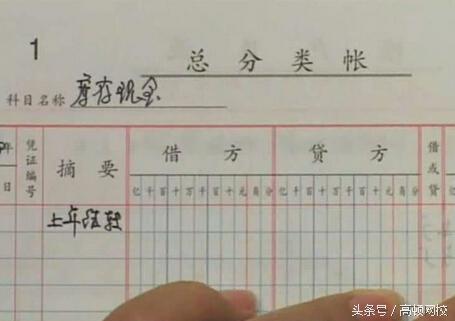 1
总分类帐
科目名称 库存现金
年 凭证编号 摘要 借方 贷方 借或贷
日 亿千百十万千百十元角分 亿千百十万千百十元角分
上年结转
头条号/高顿网校